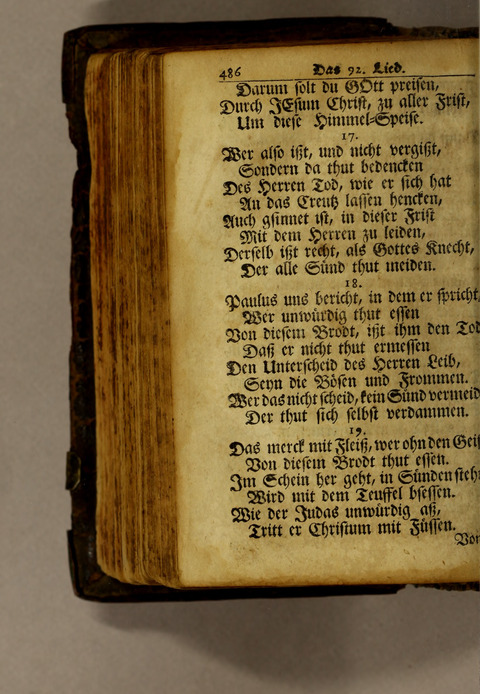 486 Das 92. Lied.
Darum solt du GOtt preisen,
Durch JEsum Christ, zu aller Frist,
Um diese Himmel-Speise.
17.
Wer also ißt, und nicht vergißt,
Sondern da thut bedencken
Des Herren Tod, wie er sich hat
An das Creutz lassen hencken,
Auch gsinnet ist, in dieser Frist
Mit dem Herren zu leiden,
Derselb ißt recht, als Gottes Knecht,
Der alle Sünd thut meiden.
18.
Paulus uns bericht, in dem er spricht,
Wer unwürdig thut essen
Von diesem Brodt, ißt ihm den Tod
Daß er nicht thut ermessen
Den Unterscheid des Herren Leib,
Seyn die Bösen und Frommen.
Wer das nicht scheid, kein Sünd vermeid
Der thut sich selbst verdammen.
19.
Das merck mit Fleiß, wer ohn den Geis
Von diesem Brodt thut essen.
Im Schein her geht, in Sünden steht
Wird mit dem Teuffel bsessen.
Wie der Judas unwürdig aß,
Tritt er Christum mit Füssen.
Von